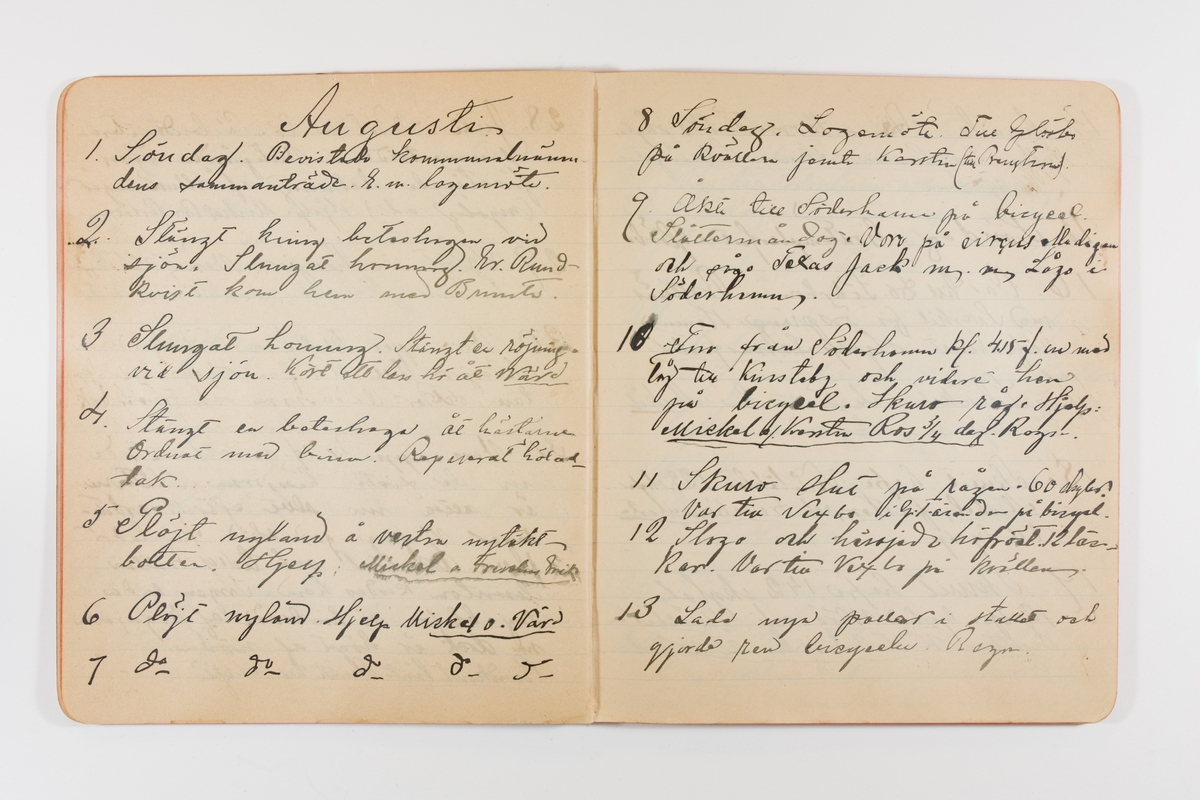 Augusti
1. Söndag. Bevistade kommunalnämn
dens sammanträde. E. m. logemöte.
2. Stängt kring beteshagen vid
sjön. Slungat honung. Er. Rund-
kvist kom hem med Brunte.
3 Slungat honung. Stängt en röjning
vid sjön. Kört ett lass hö åt Vård
4. Stängt en beteshage åt hästarne
Ordnat med bina. Reparerat
tak.
5 Plöjt nyland å västra nytäkt-
botten. Hjelp: Mickel o
6 Plöjt nyland. Hjelp Mickel o. Vård
7 do do do do 5-
8 Söndag. Logemöte. Till
på kvällen jemte Karsten
9. Åkte till Söderhamn på bicycel.
Slåttermåndag. Voro på circus Madigan
och sågo Texas Jack m. m. Lågo i
Söderhamn.
10 Foro från Söderhamn kl. 415 f. m med
tåg till Kilafors och vidare hem
på bicycel. Skuro råg. Hjelp:
Mickel o/ Karsten Ros 3/4 dag. Regn.
11 Skuro slut på rågen. 60 skylar.
Var till Vexbo i ärender på bicycel.
12 Slogo och hässjade höfröet. 12
kar. Var till Vexbo på kvällen.
13 Lade nya pallar i stallet och
gjorde ren bicyceln. Regn.